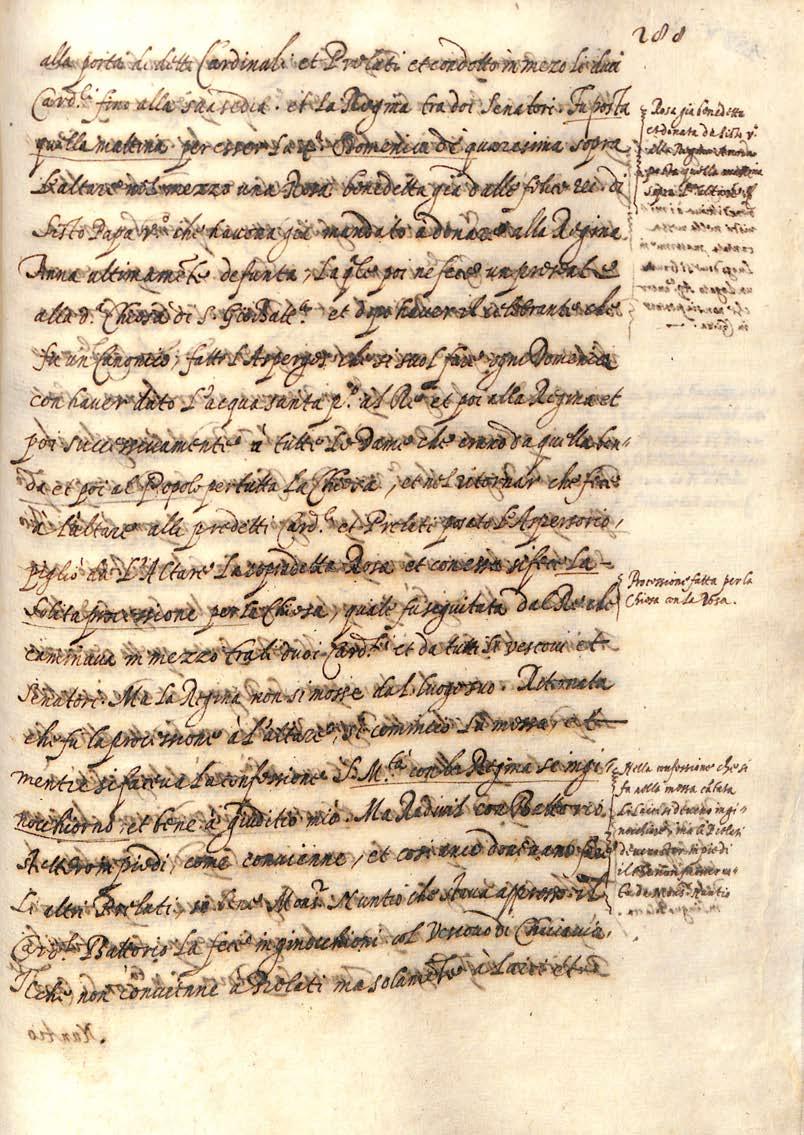 288
alla porta da detti Cardinali et Prelati et condotto in mezo li duoi
Card.li fino alla sua sedia. et La Regina tra doi Senatori. Fu posta
quella mattina per esser La p.a Domenica di quaresima sopra
L'altare nel mezzo una Rosa benedetta già dalla felice di
Sisto Papa V.o che haveva già mandato a donare alla Regina
Anna ultimam.te defunta, La q.le poi ne fece un presente
alla d.a Chiesa di S. Gio: Batt.a et dopo haver il celebrante che
fu un Canonico, fatto L'Asperges, che si suol fare ogni Domenica
con haver dato L'acqua santa p.a al Re et poi alla Regina et
poi successivamente a tutte Le Dame che erano da quella ban-
da et poi al Popolo per tutta La Chiesa, et nel ritornar che fece
à L'altare alli predetti Card.li et Prelati posato L'Aspersorio,
Pigliò da L'Altare La sopradetta Rosa et con essa si fece La
solita processione per la Chiesa, quale fu seguitata dal Re che
caminava in mezzo tra li duoi Card.li et da tutti li vescovi et
Senatori. Ma La Regina non si mosse dal luogo suo. Ritornata
che fù la processione à L'altare, si cominciò La messa, et
mentre si faceva La confessione S. M.tà con la Regina se ingi-
nocchiorno, et bene à giuditio mio. Ma Radivil con Battorio
stettero in piedi, come conviene, et così anco dovevano fare
Li altri Prelati, se bene Mons.r Nuntio che stava appresso il
Card.le Battorio La fece inginocchioni col Vescovo di Chuiavia,
Il che non conviene à Prelati ma solamente à Laici et
Rosa già benedetta
et donata da Sisto V.o
alla Regina Anna
posta quella mattina
sopra L'altare
Processione fatta per la
Chiesa con La Rosa.
Nella confessione che si
fa nella messa cantata
Li Laici si devono ingi-
nocchiare, ma li Prelati
devono star in piedi
Nuntio